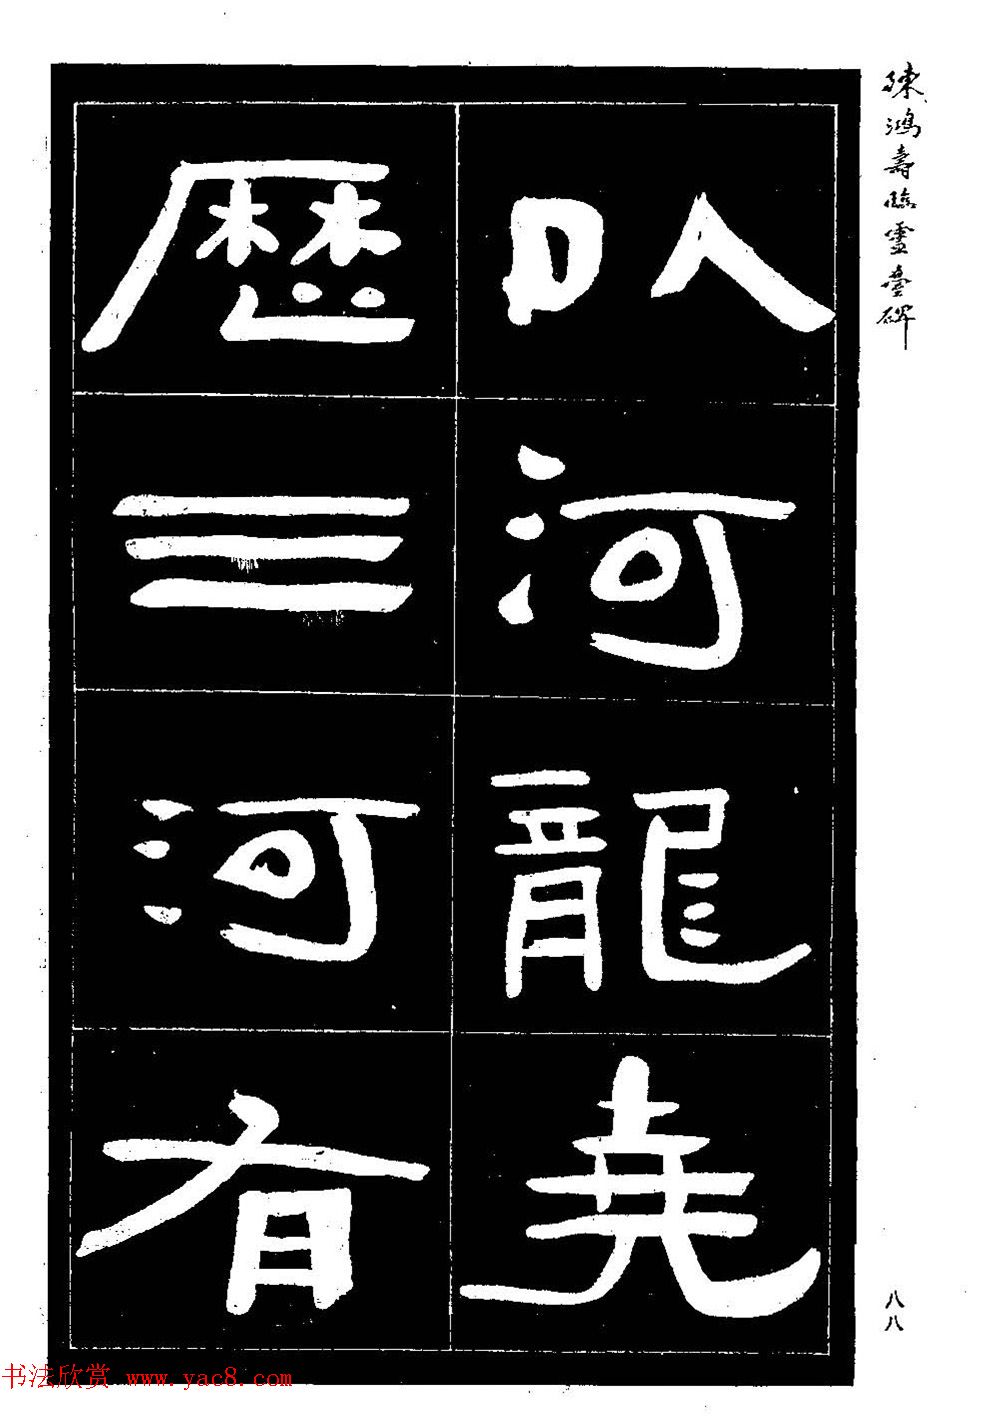 陳鴻壽臨靈臺碑
以河龍堯
歷三河有
八八
书法欣赏 www.yac8.com